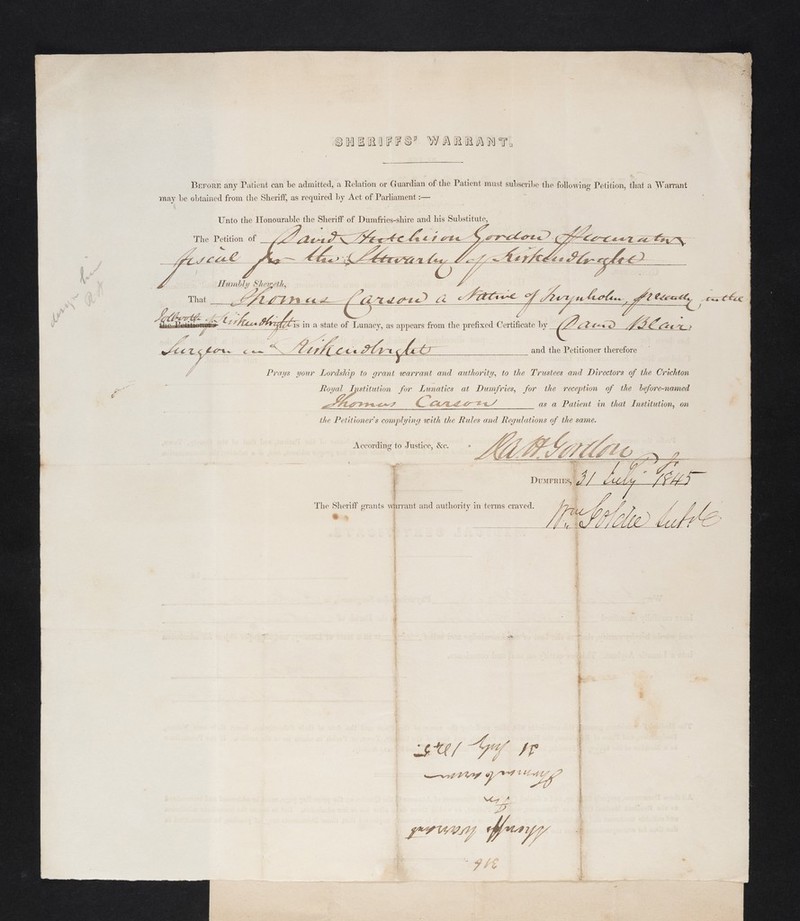 SHERIFFS' WARRANT.
BEFORE any Patient can be admitted, a Relation or Guardian of the Patient must subscribe the following Petition, that a Warrant
may be obtained from the Sheriff, as required by Act of Parliament :—
Unto the Honourable the Sheriff of Dumfries-shire and his Substitute,
The Petition of David Hutchison Gordon Procurator
fiscal for the Stewartry of Kirkcudbright
Humbly Sheweth,
That Thomas Carson a Native of Twynholm, presently in the
Tolbooth of Kirkcudbright is in a state of Lunacy, as appears from the prefixed Certificate by David Blair
the Petitioner's
Surgeon in Kirkcudbright and the Petitioner therefore
Prays your Lordship to grant warrant and authority, to the Trustees and Directors of the Crichton
Royal Institution for Lunatics at Dumfries, for the reception of the before-named
Thomas Carson as a Patient in that Institution, on
the Petitioner's complying with the Rules and Regulations of the same.
According to Justice, &c.
Da H Gordon
DUMFRIES, 31 July 1845
The Sheriff grants warrant and authority in terms craved.
Wm Goldie Subte
396
Sheriffs Warrant
for
Thomas Carson
31 July 1845.